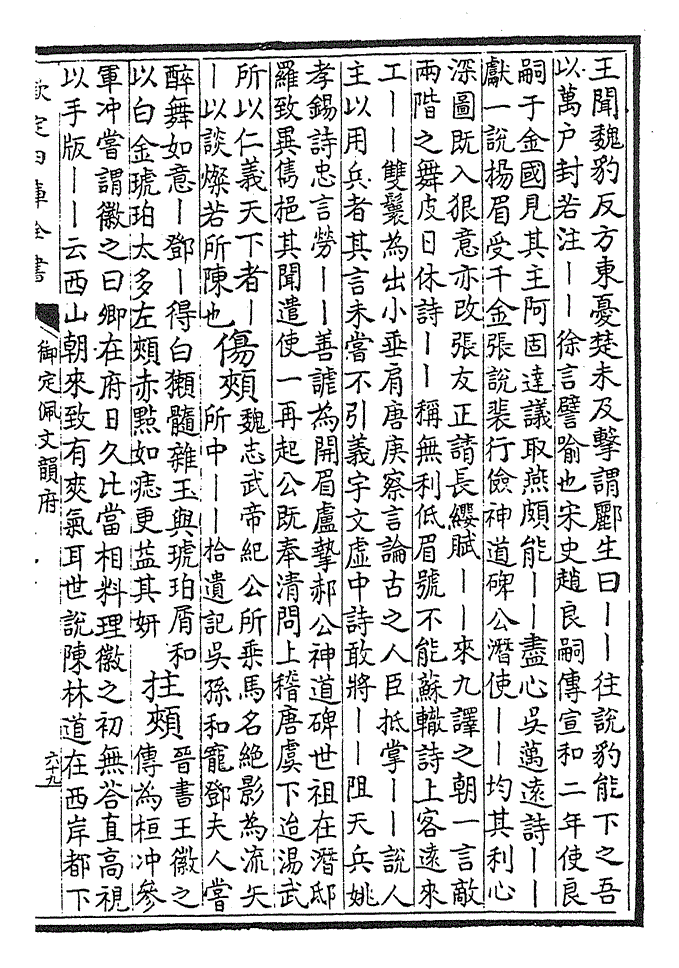 王聞魏豹反方東憂楚未及擊謂酈生曰丨丨往說豹能下之吾
以萬户封若注丨丨徐言譬喻也宋史趙良嗣傳宣和二年使良
嗣于金國見其主阿固達議取燕頗能丨丨盡心吳萬遠詩丨丨
獻一說揚眉受千金張說裴行儉神道碑公潛使丨丨均其利心
深圖既入狠意亦改張友正請長纓賦丨丨來九譯之朝一言敵
兩階之舞皮日休詩丨丨稱無利低眉號不能蘇轍詩上客遠來
工丨丨雙鬟為出小垂肩唐庚察言論古之人臣抵掌丨丨說人
主以用兵者其言未嘗不引義宇文虛中詩敢將丨丨阻天兵姚
孝錫詩忠言勞丨丨善謔為開眉盧摯郝公神道碑世祖在潛邸
羅致異儁挹其聞遣使一再起公既奉清問上稽唐虞下迨湯武
所以仁義天下者丨
丨以談燦若所陳也
傷頰
魏志武帝紀公所乘馬名絶影為流矢
所中丨丨拾遺記吳孫和寵鄧夫人嘗
醉舞如意丨鄧丨得白獺髓雜玉與琥珀屑和
以白金琥珀太多左頰赤點如痣更益其妍
拄頰
晉書王徽之
傳為桓冲參
軍冲嘗謂徽之曰卿在府日久比當相料理徽之初無答直高視
以手版丨丨云西山朝來致有爽氣耳世說陳林道在西岸都下
欽定四庫全書
御定佩文韻府
六十九